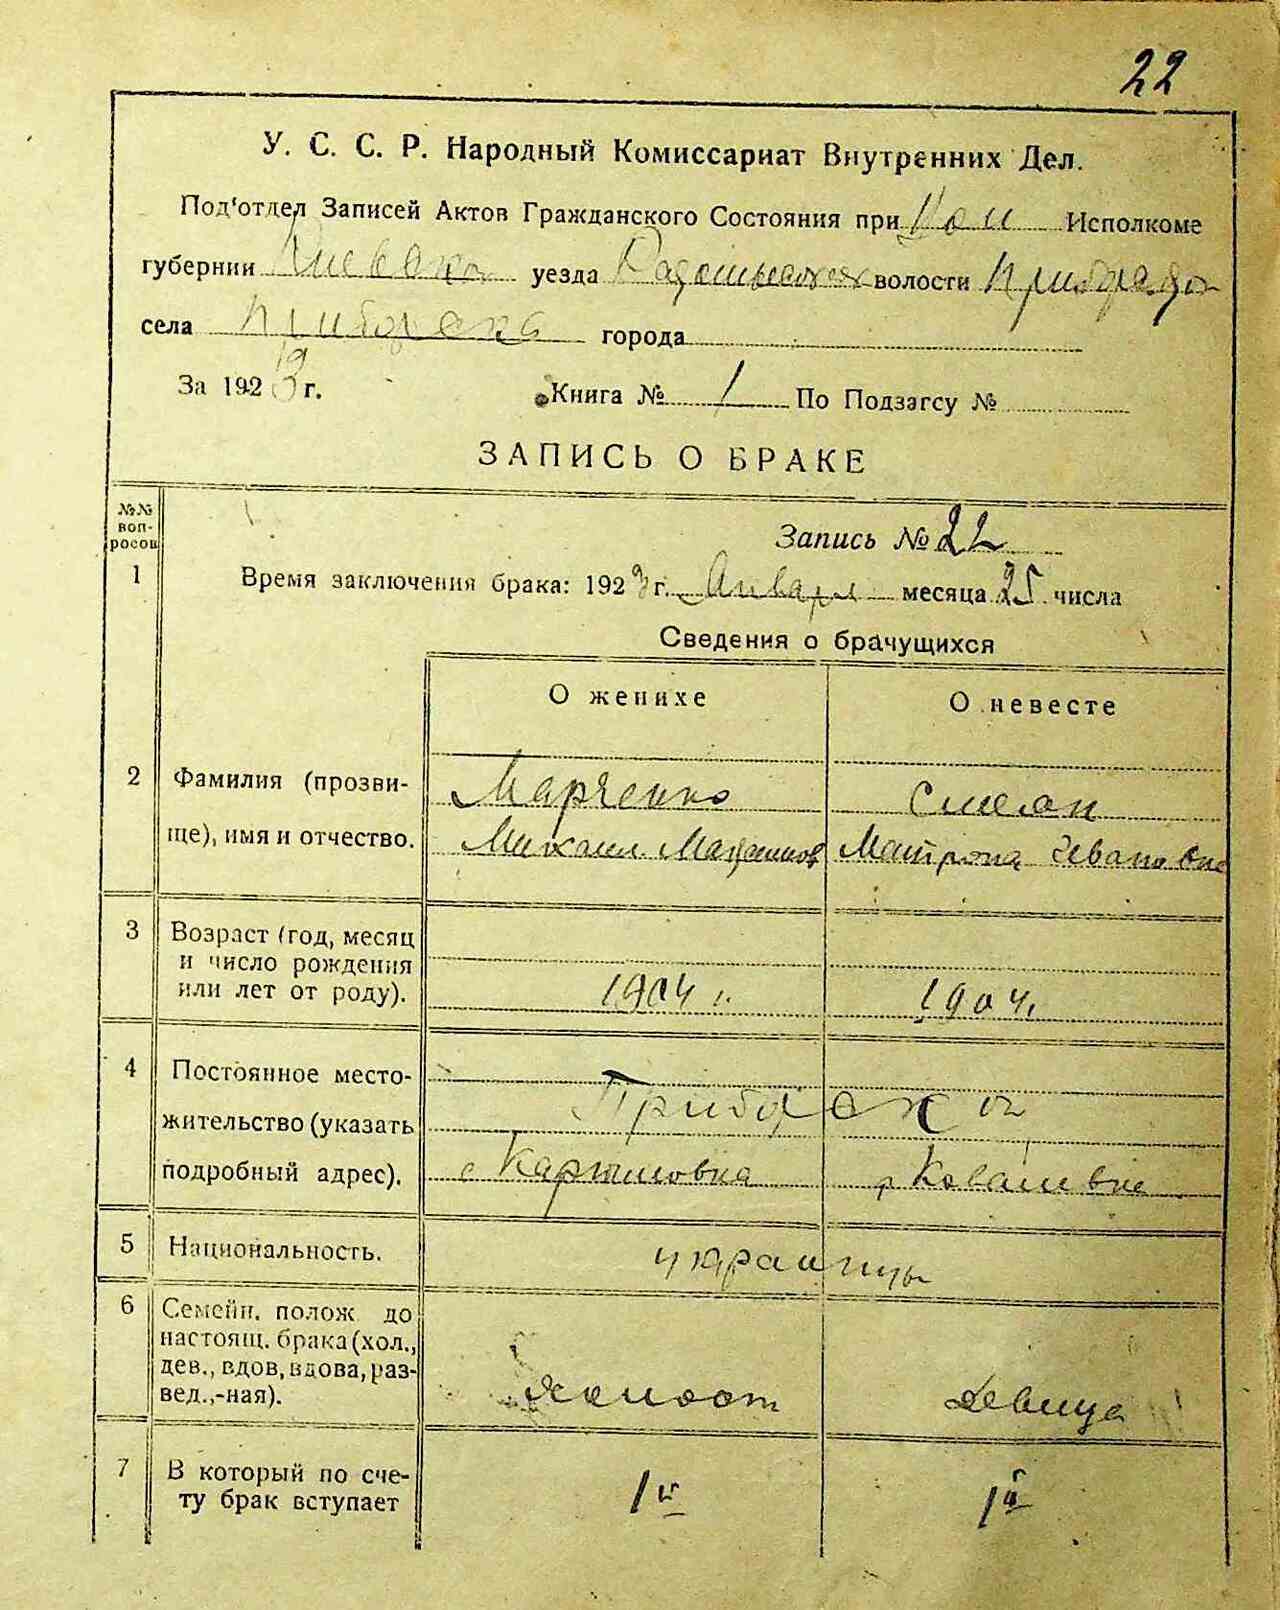 22
У. С. С. Р. Народный Комиссариат Внутренних Дел.
Под'отдел Записей Актов Гражданского Состояния при Вол Исполкоме
губернии Киевской уезда Радомысльск волости
села города
За 1923 г. Книга № 1 По Подзагсу №
ЗАПИСЬ О БРАКЕ
№№ воп- росов
Запись № 22
1 Время заключения брака: 1923 г. Января месяца 25 числа
Сведения о брачущихся
О женихе О невесте
2 Фамилия (прозви- Марченко
ще), имя и отчество. Михаил Матрона Ивановна
3 Возраст (год, месяц
и число рождения
или лет от роду). 1904 г. 1904 г.
4 Постоянное место-
жительство (указать
подробный адрес).
5 Национальность. украинцы
6 Семейн. полож до
настоящ. брака (хол.,
дев., вдов, вдова, раз-
вед.,-ная). холост девица
7 В который по сче-
ту брак вступает 1й 1й